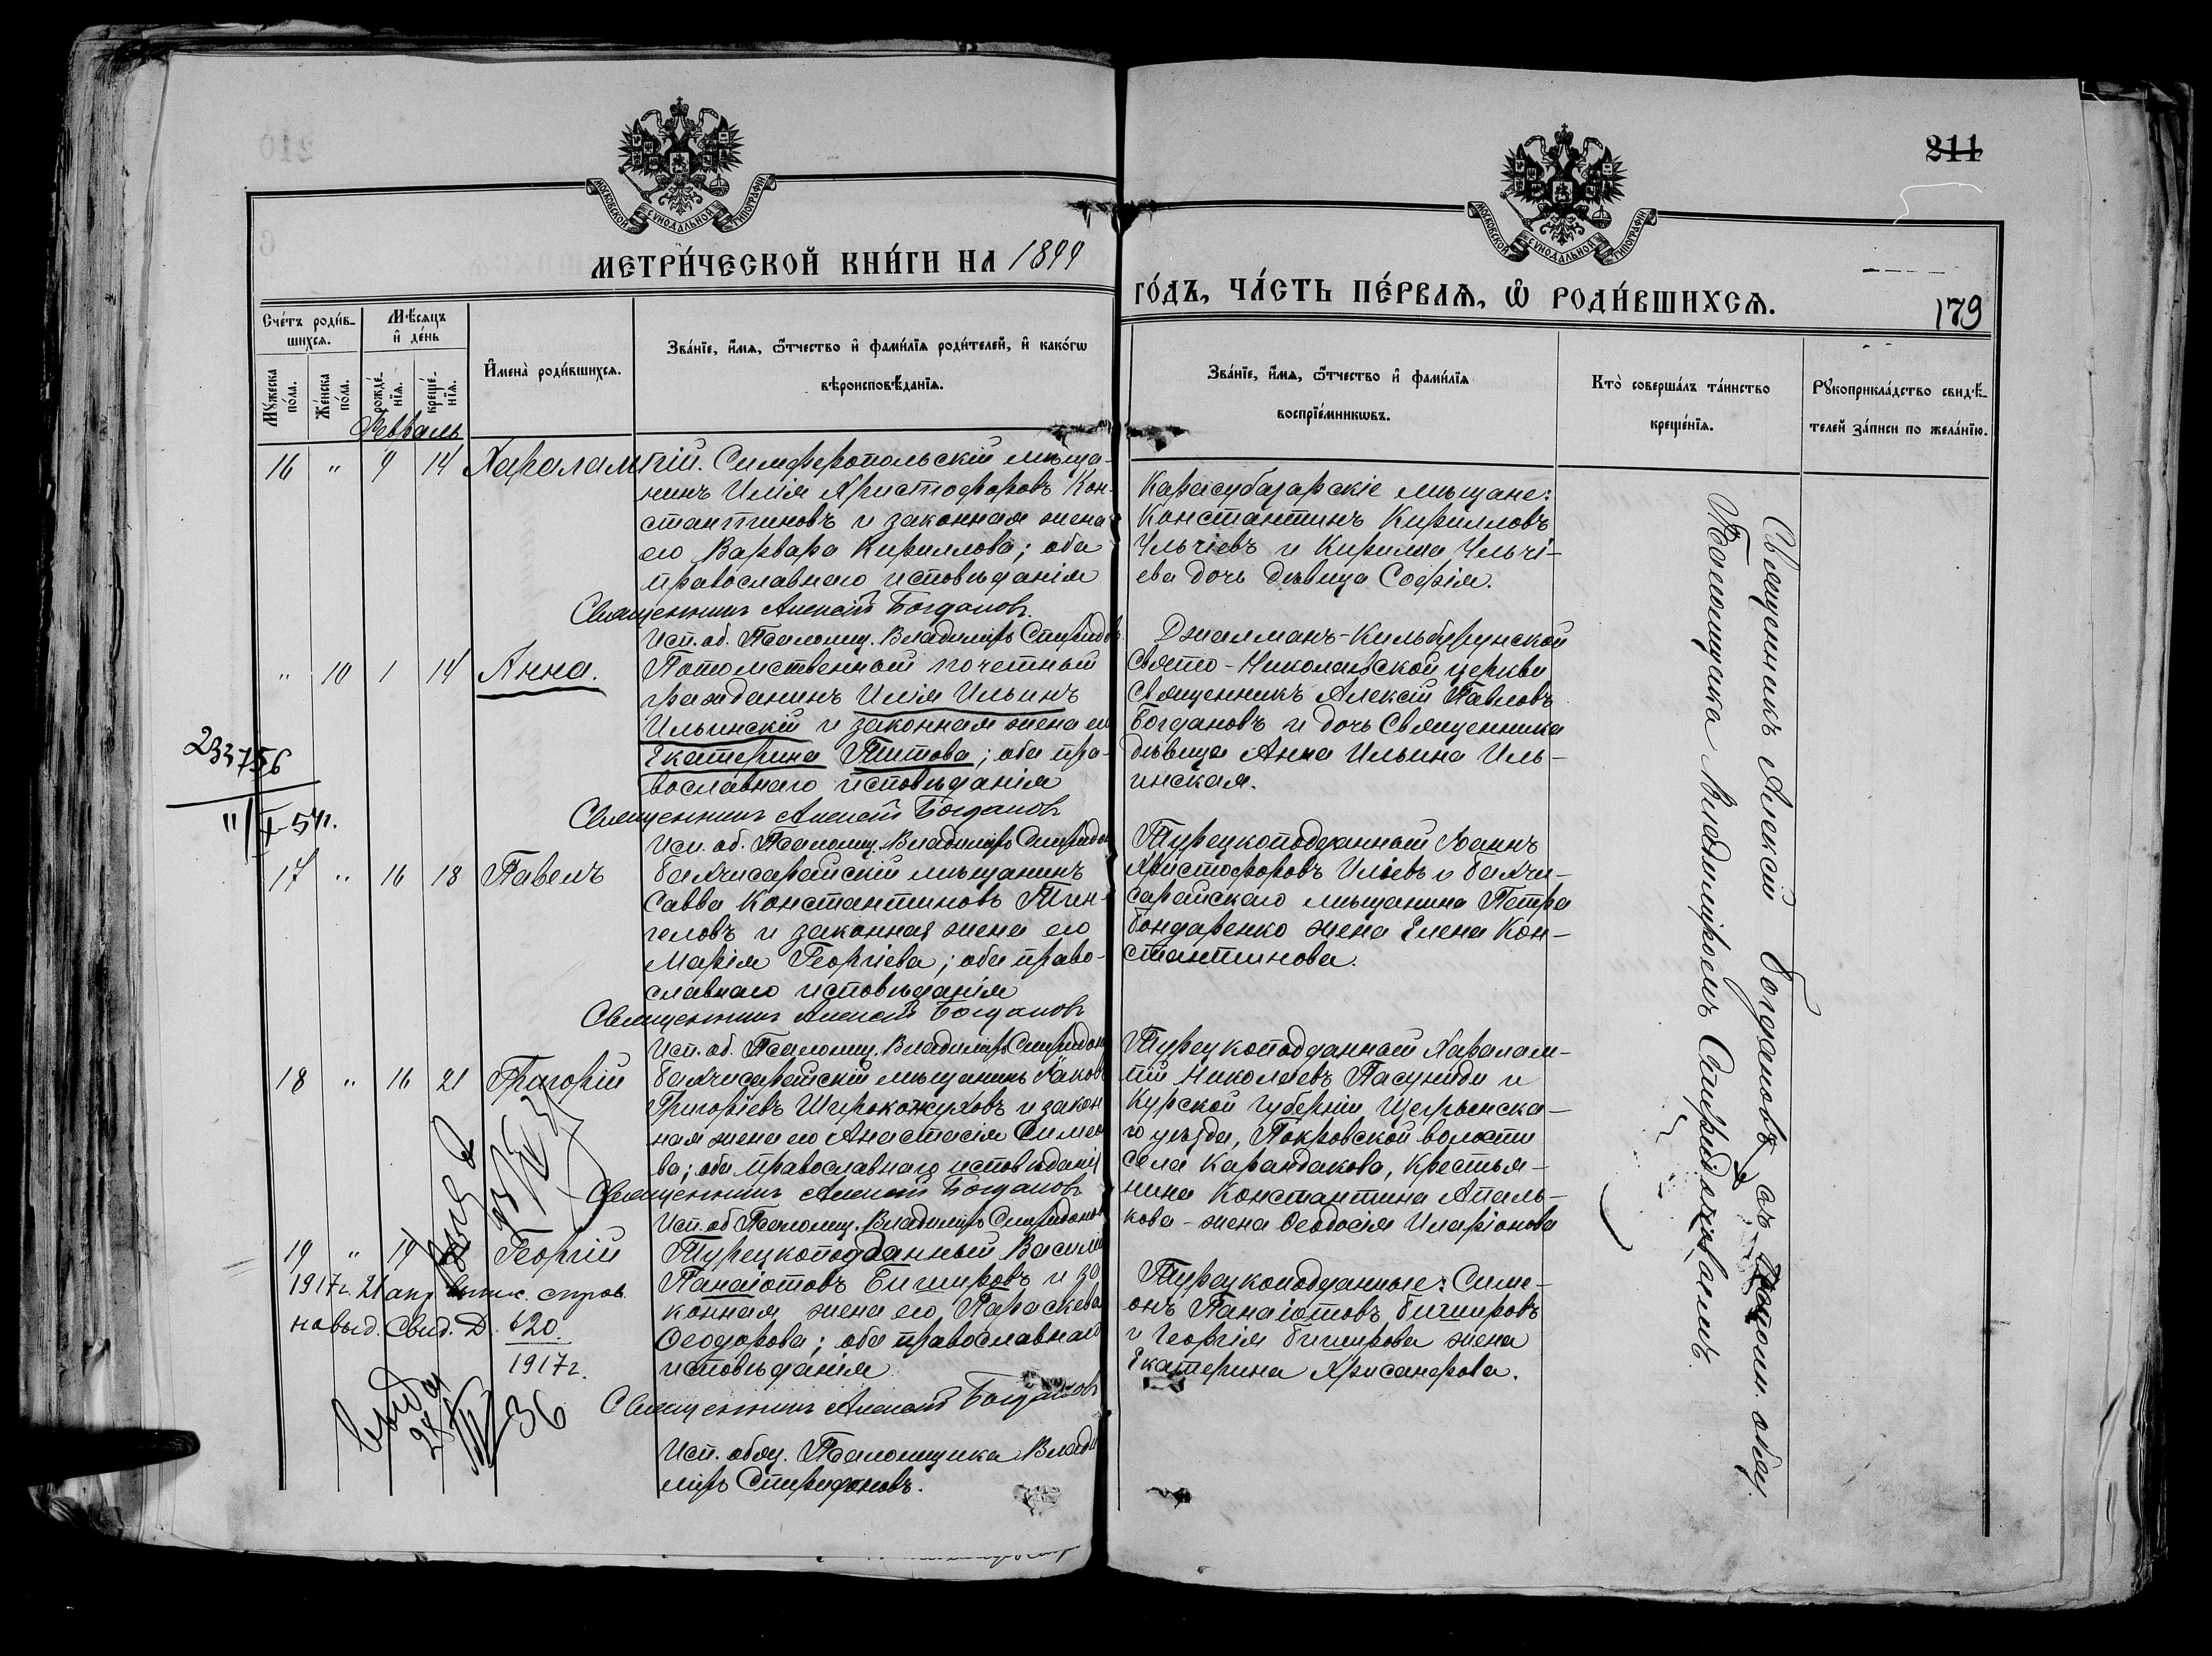 211
МОСКОВСКОЙ СѴНОДАЛЬНОЙ ТИПОГРАФІИ
МОСКОВСКОЙ СѴНОДАЛЬНОЙ ТИПОГРАФІИ
МЕТРИ́ЧЕСКОЙ КНИ́ГИ НА 1899
ГО́ДЪ, ЧА́СТЬ ПЕ́РВАѦ, Ѽ РОДИ́ВШИХСѦ.
179
Сче́тъ роди́в-
шихсѧ.
Мѣ́сѧцъ
и҆ де́нь
Мꙋ́жеска
по́ла.
Же́нска
по́ла.
рожде́-
нїѧ.
креще́-
нїѧ.
И҆мена̀ роди́вшихсѧ.
Зва́нїе, и҆́мѧ, ѻ҆́тчество и҆ фами́лїѧ роди́телей, и҆ како́гѡ
вѣроисповѣ́данїѧ.
Зва́нїе, и҆́мѧ, ѻ҆́тчество и҆ фами́лїѧ
воспрїе́мникѡвъ.
Кто̀ соверша́лъ та́инство
креще́нїѧ.
Рꙋкоприкла́дство свидѣ́-
телей за́писи по жела́нїю.
Февраль
16 " 9 14 Харалампій. Симферопольскій мѣща-
нинъ Илія Христофоровъ Кон-
стантиновъ и законная жена
его Варвара Кириллова; оба
православнаго исповѣданія
Священникъ Алексій Богдановъ.
Исп. об. Псаломщ. Владиміръ Спиридон
Карасубазарскіе мѣщане:
Константинъ Кирилловъ
Чльчіевъ и Кирилла Чльчі-
ева дочь дѣвица Софія.
" 10 1 14 Анна. Потомственный почетный
гражданинъ Илія Ильинъ
Ильинскій и законная жена его
Екатерина Титова; оба пра-
вославнаго исповѣданія
Священникъ Алексій Богдановъ
Исп. об. Псаломщ. Владиміръ Спиридон
Джалманъ-Кильбурунской
Свято-Николаевской церкви
Священникъ Алексій Павловъ
Богдановъ и дочь Священника
дѣвица Анна Ильина Иль-
инская.
233756
17 " 16 18 Павелъ Бахчисарайскій мѣщанинъ
Савва Константиновъ Тин-
геловъ и законная жена его
Марія Георгіева; оба право-
славнаго исповѣданія
Священникъ Алексій Богдановъ
Исп. об. Псаломщ. Владиміръ Спиридон
Турецкоподданный Іоаннъ
Христофоровъ Иліевъ и Бахчи-
сарайскаго мѣщанина Петра
Бондаренко жена Елена Кон-
стантинова.
18 " 16 21 Григорій Бахчисарайскій мѣщанинъ Іаковъ
Григоріевъ Широкожуховъ и закон
ная жена его Анастасія Симео
ва; оба православнаго исповѣданія
Священникъ Алексій Богдановъ
Исп. об Псаломщ. Владиміръ Спиридонов
Турецкоподданный Харалам-
пій Николаевъ Пасуниди и
Курской губерніи Щегрынска-
го уѣзда, Покровской волости
села Карандакова, Крестья-
нина Константина Апаль-
кова - жена Ѳеодосія Иларіонова
19 " 19 Георгій Турецкоподданный Василій
Панаіотовъ Бигшровъ и за
конная жена его Параскева
Ѳеодорова; оба православнаго
исповѣданія
Священникъ Алексій Богдановъ
Исп. обяз. Псаломщика Влади
міръ Спиридоновъ.
Турецкоподданные: Симе-
онъ Панаіотовъ Бигшровъ
и Георгія Бигширова жена
Екатерина Хрисанфова.
1917г. 21 апр. выпис. справ.
но выд. Свид. Д. 620
1917г.
36
Священникъ Алексій Богдановъ съ исполн. обяз.
Псаломщика Владиміромъ Спиридоновымъ.